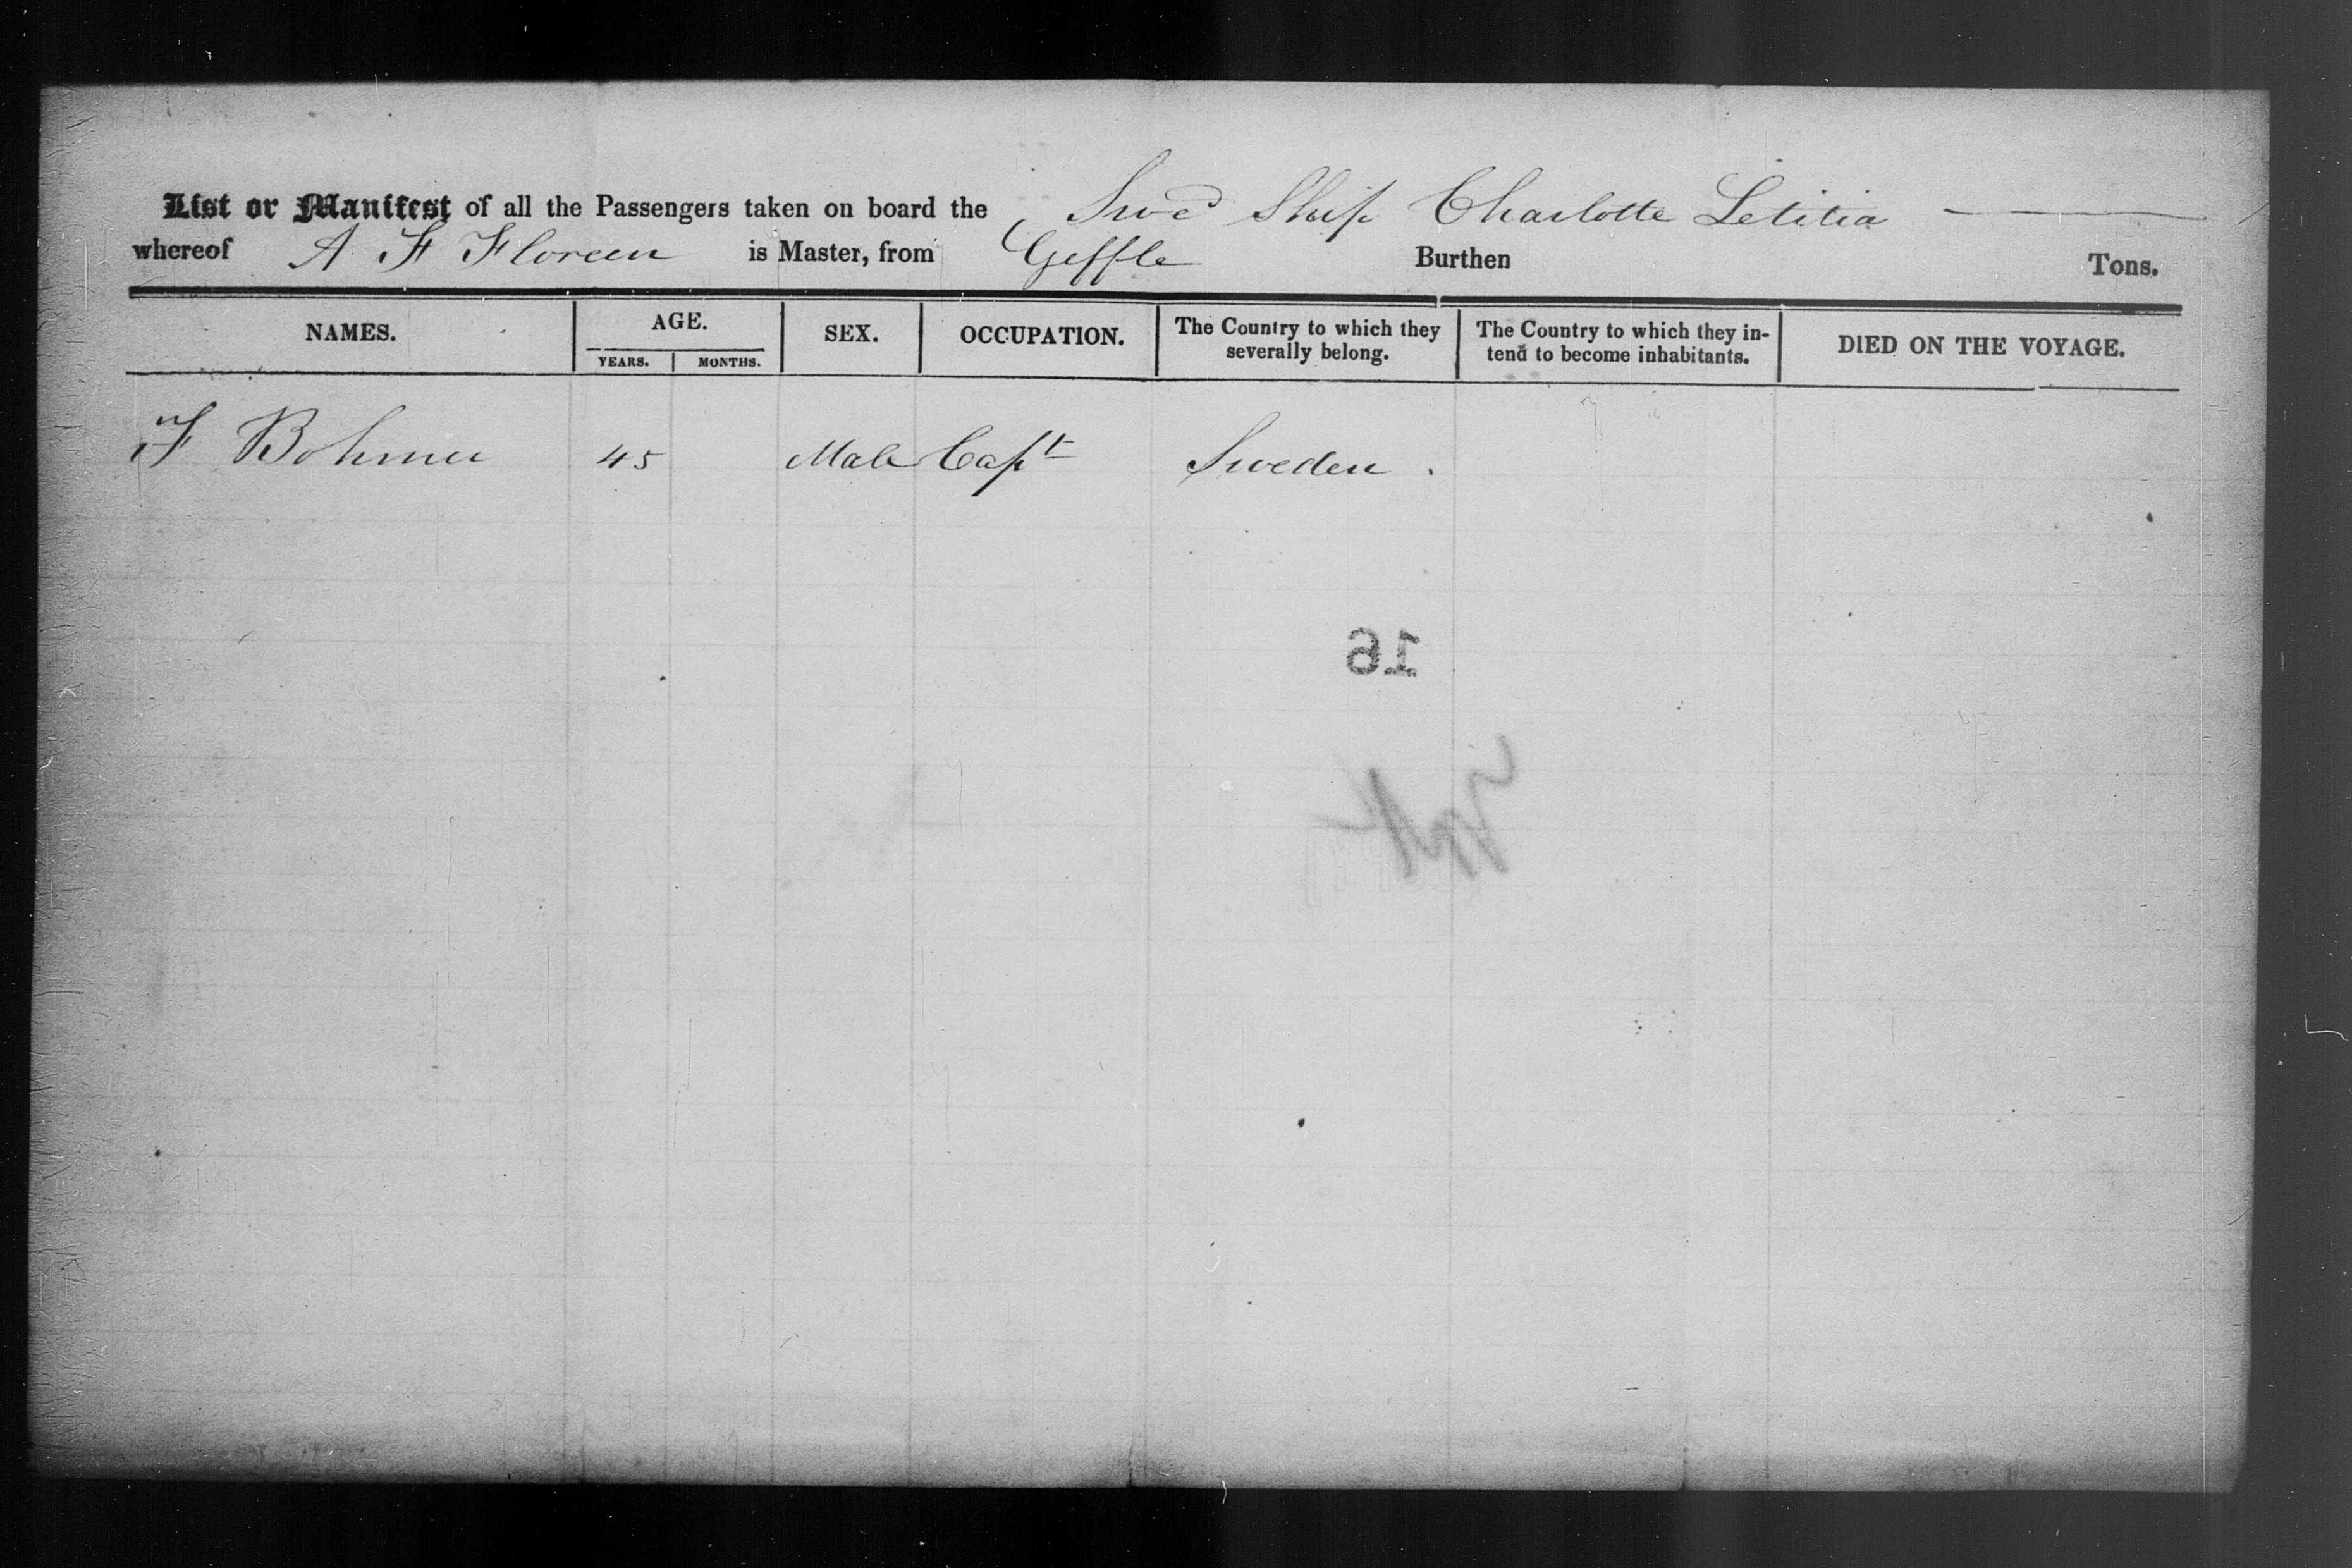 List or Manifest of all the Passengers taken on board the Swed Ship Charlotte Letitia
whereof A. F Floreen is Master, from Geffle Burthen Tons.
NAMES. AGE. SEX. OCCUPATION. The Country to which they severally belong. The Country to which they in-tend to become inhabitants. DIED ON THE VOYAGE.
YEARS. MONTHS.
F Bohmer 45 Male Capt Sweden.
16